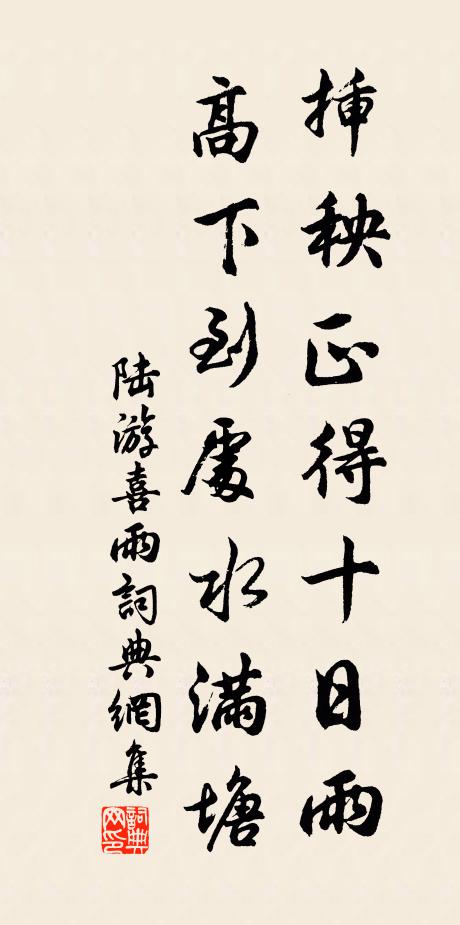 挿秧正得十日雨
高下到處水滿塘
陸游喜雨詞典網集
詞典网印